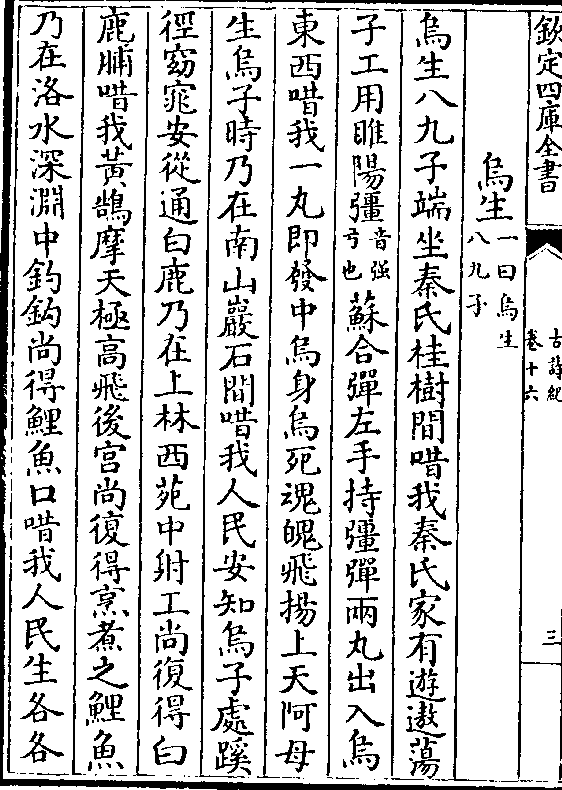 欽定四庫全書
古詩紀
卷十六
三
烏生一曰烏生八九子
烏生八九子端坐秦氏桂樹間唶我秦氏家有遊遨蕩
子工用睢陽彊音强弓也蘇合彈左手持彊彈兩丸出入烏
東西唶我一丸即發中烏身烏死魂魄飛揚上天阿母
生烏子時乃在南山巖石間唶我人民安知烏子處蹊
徑窈窕安從通白鹿乃在上林西苑中射工尚復得白
鹿脯唶我黃鵠摩天極高飛後宮尚復得烹煮之鯉魚
乃在洛水深淵中釣鈎尚得鯉魚口唶我人民生各各